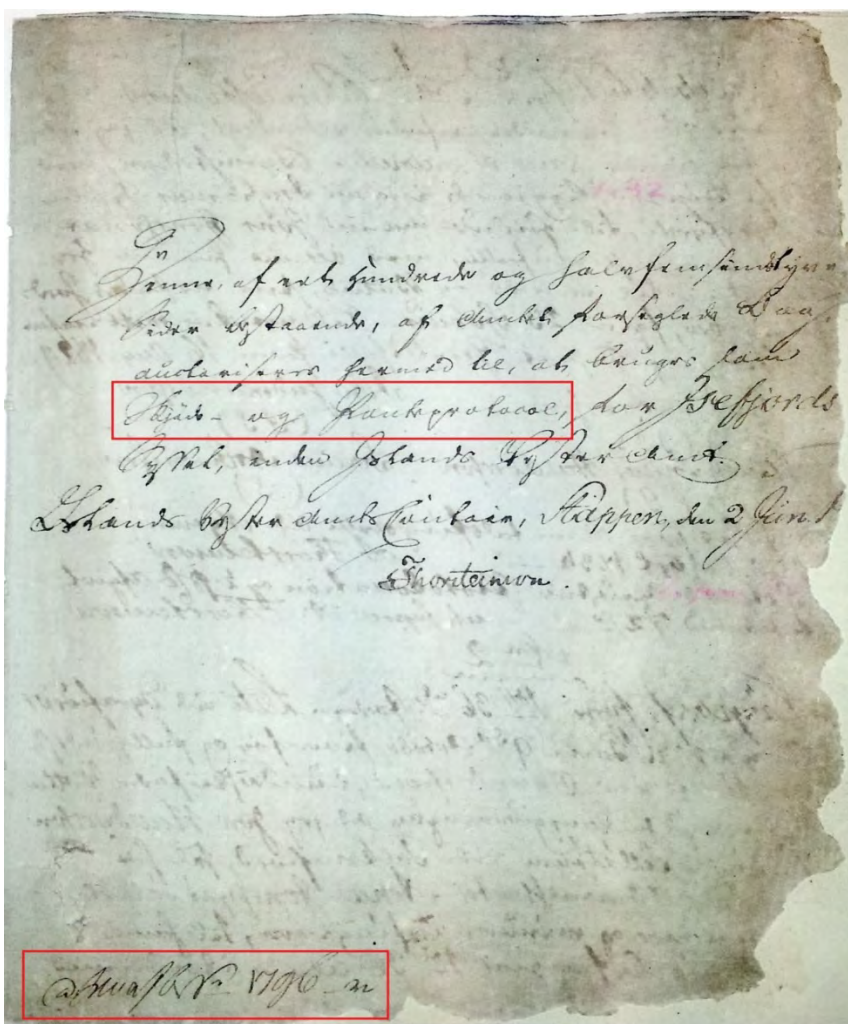 Denne, af eet Hundrede og halvfemsindstyve
Sider bestaaende, af Amtet forseglede Bog,
auctoriseres hermed til, at bruges som
Skjøde- og Panteprotocol, for Isefjords
Syssel, inden Islands Vester Amt.
Islands Vester Amts Contoir, Stappen, den 2 Juni
Thorsteinson.
No 1796